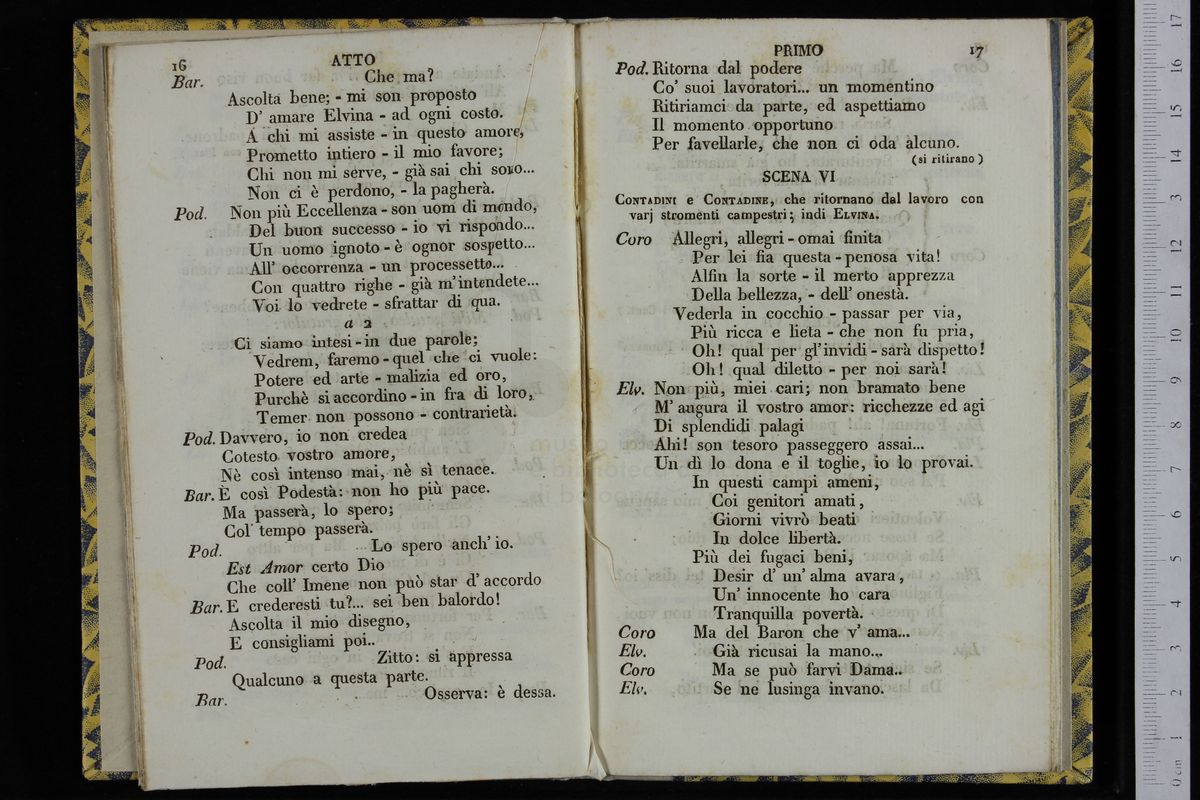 16 ATTO
Bar. Che ma?
Ascolta bene; - mi son proposto
D' amare Elvina - ad ogni costo.
A chi mi assiste - in questo amore,
Prometto intiero - il mio favore;
Chi non mi serve, - già sai chi sono...
Non ci è perdono, - la pagherà.
Pod. Non più Eccellenza - son uom di mondo,
Del buon successo - io vi rispondo...
Un uomo ignoto - è ognor sospetto...
All' occorrenza - un processetto...
Con quattro righe - già m'intendete...
Voi lo vedrete - sfrattar di qua.
a 2
Ci siamo intesi - in due parole;
Vedrem, faremo - quel che ci vuole:
Potere ed arte - malizia ed oro,
Purchè si accordino - in fra di loro,
Temer non possono - contrarietà.
Pod. Davvero, io non credea
Cotesto vostro amore,
Nè così intenso mai, nè sì tenace.
Bar. È così Podestà: non ho più pace.
Ma passerà, lo spero;
Col tempo passerà.
Pod. Lo spero anch' io.
Est Amor certo Dio
Che coll' Imene non può star d' accordo
Bar. E crederesti tu?... sei ben balordo!
Ascolta il mio disegno,
E consigliami poi..
Pod. Zitto: si appressa
Qualcuno a questa parte.
Bar. Osserva: è dessa.
PRIMO 17
Pod. Ritorna dal podere
Co' suoi lavoratori... un momentino
Ritiriamci da parte, ed aspettiamo
Il momento opportuno
Per favellarle, che non ci oda alcuno.
(si ritirano)
SCENA VI
CONTADINI e CONTADINE, che ritornano dal lavoro con
varj stromenti campestri; indi ELVINA.
Coro Allegri, allegri - omai finita
Per lei fia questa - penosa vita!
Alfin la sorte - il merto apprezza
Della bellezza, - dell' onestà.
Vederla in cocchio - passar per via,
Più ricca e lieta - che non fu pria,
Oh! qual per gl'invidi - sarà dispetto!
Oh! qual diletto - per noi sarà!
Elv. Non più, miei cari; non bramato bene
M' augura il vostro amor: ricchezze ed agi
Di splendidi palagi
Ahi! son tesoro passeggero assai...
Un dì lo dona e il toglie, io lo provai.
In questi campi ameni,
Coi genitori amati,
Giorni vivrò beati
In dolce libertà.
Più dei fugaci beni,
Desir d' un' alma avara,
Un' innocente ho cara
Tranquilla povertà.
Coro Ma del Baron che v' ama...
Elv. Già ricusai la mano...
Coro Ma se può farvi Dama..
Elv. Se ne lusinga invano.